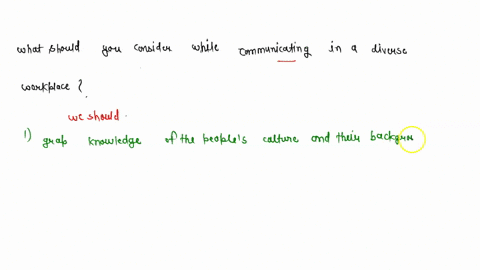 what should you consider while communicating in a diverse
workplace?
we should.
1) grap knowledge of the people's culture and their backgro